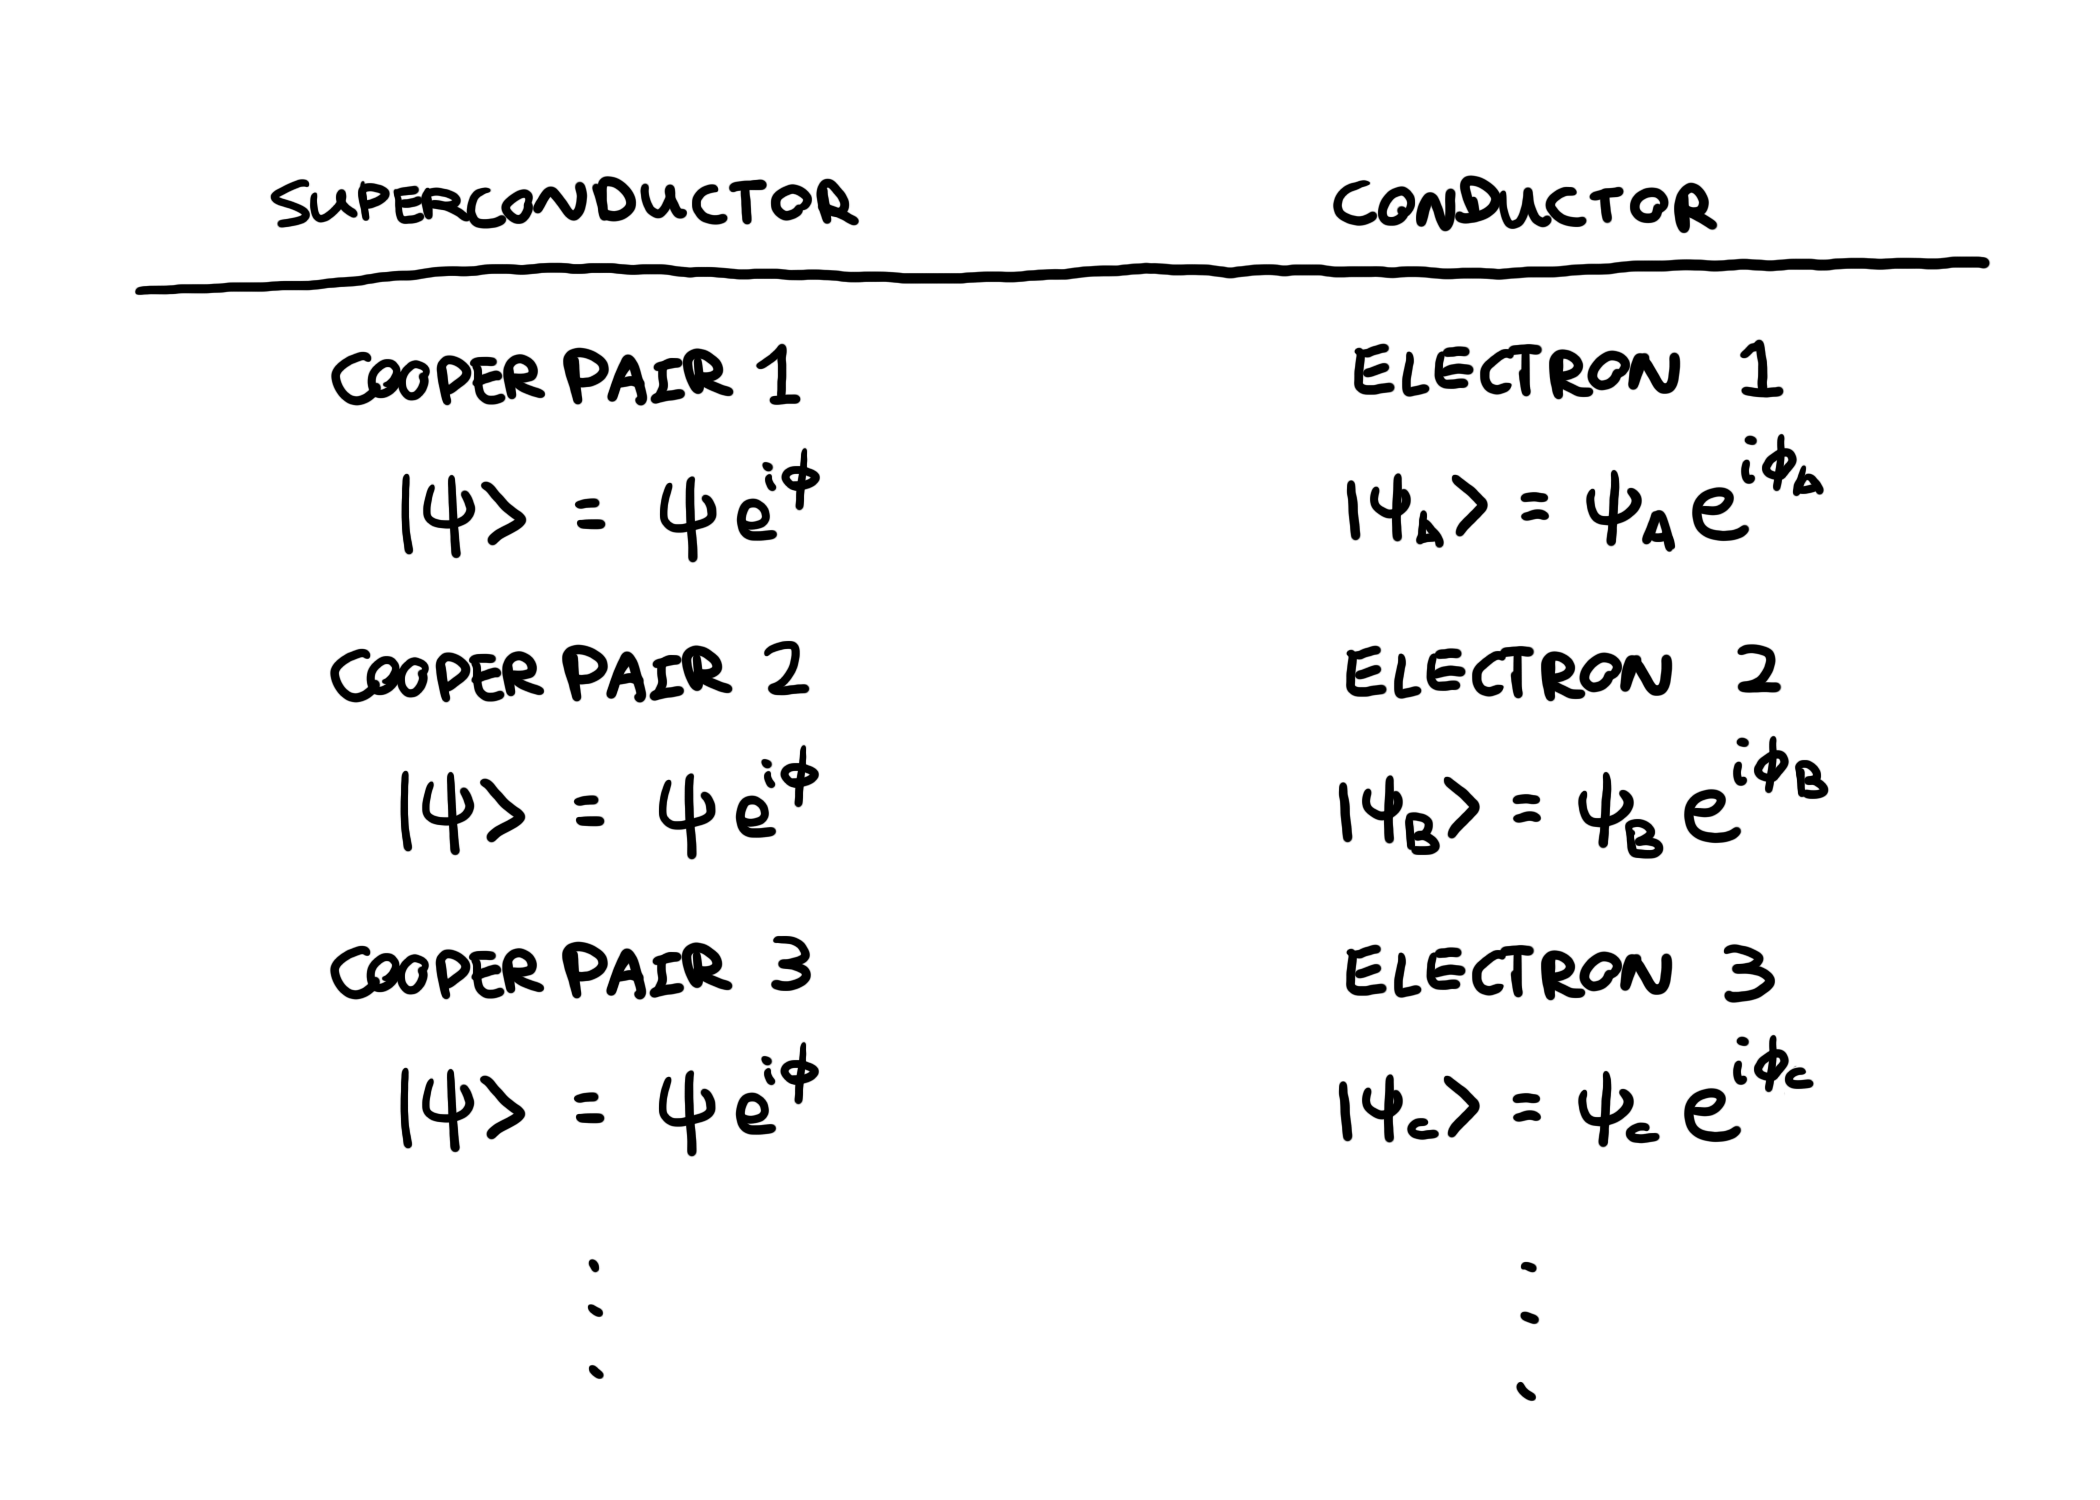 SUPERCONDUCTOR CONDUCTOR
COOPER PAIR 1 ELECTRON 1
|ψ> = ψe^{iϕ} |ψ_A> = ψ_A e^{iϕ_A}
COOPER PAIR 2 ELECTRON 2
|ψ> = ψe^{iϕ} |ψ_B> = ψ_B e^{iϕ_B}
COOPER PAIR 3 ELECTRON 3
|ψ> = ψe^{iϕ} |ψ_C> = ψ_C e^{iϕ_C}
⋮ ⋮